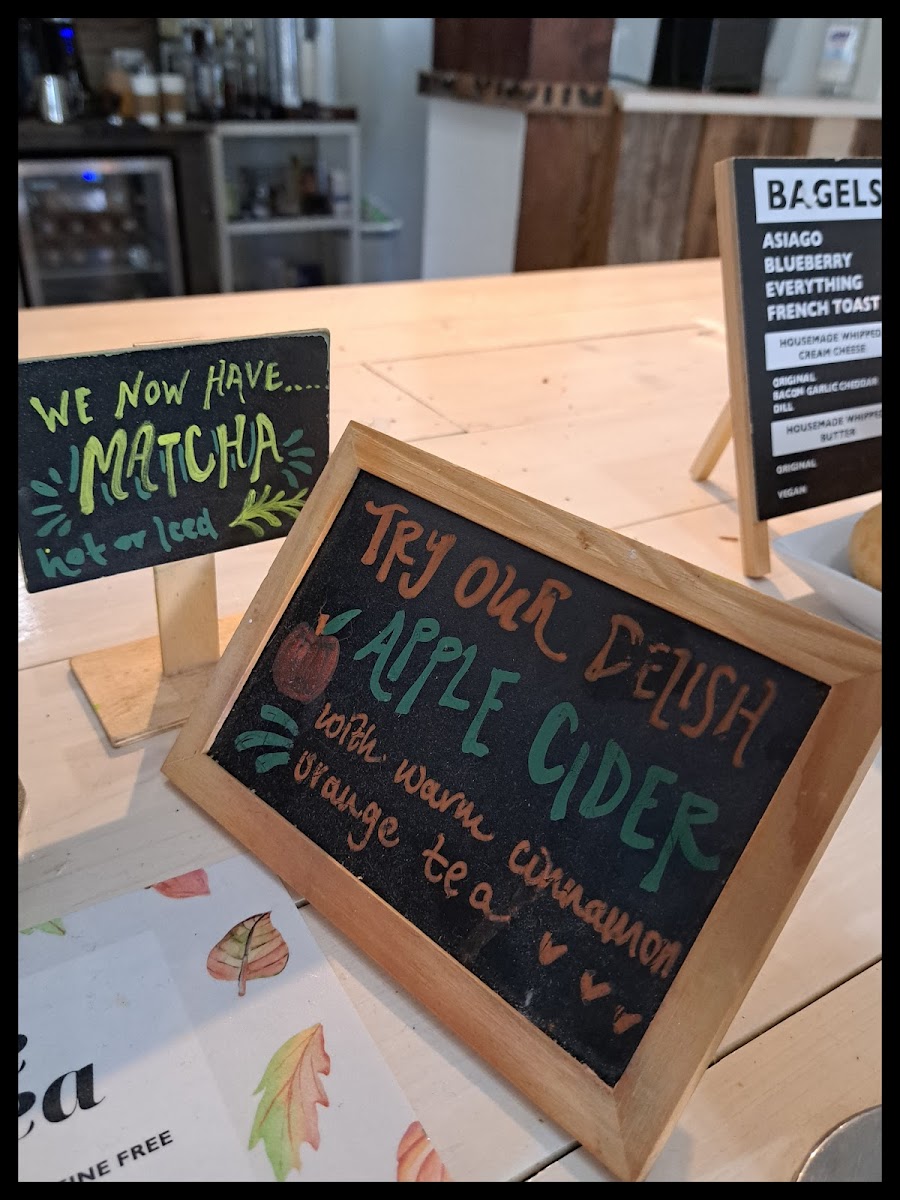 WE NOW HAVE.....
MATCHA
hot or Iced
TRY OUR DELISH
APPLE CIDER
with warm cinnamon
orange tea
BAGELS
ASIAGO
BLUEBERRY
EVERYTHING
FRENCH TOAST
HOUSEMADE WHIPPED
CREAM CHEESE
ORIGINAL
BACON GARLIC CHEDDAR
DILL
HOUSEMADE WHIPPED
BUTTER
ORIGINAL
VEGAN
FREE